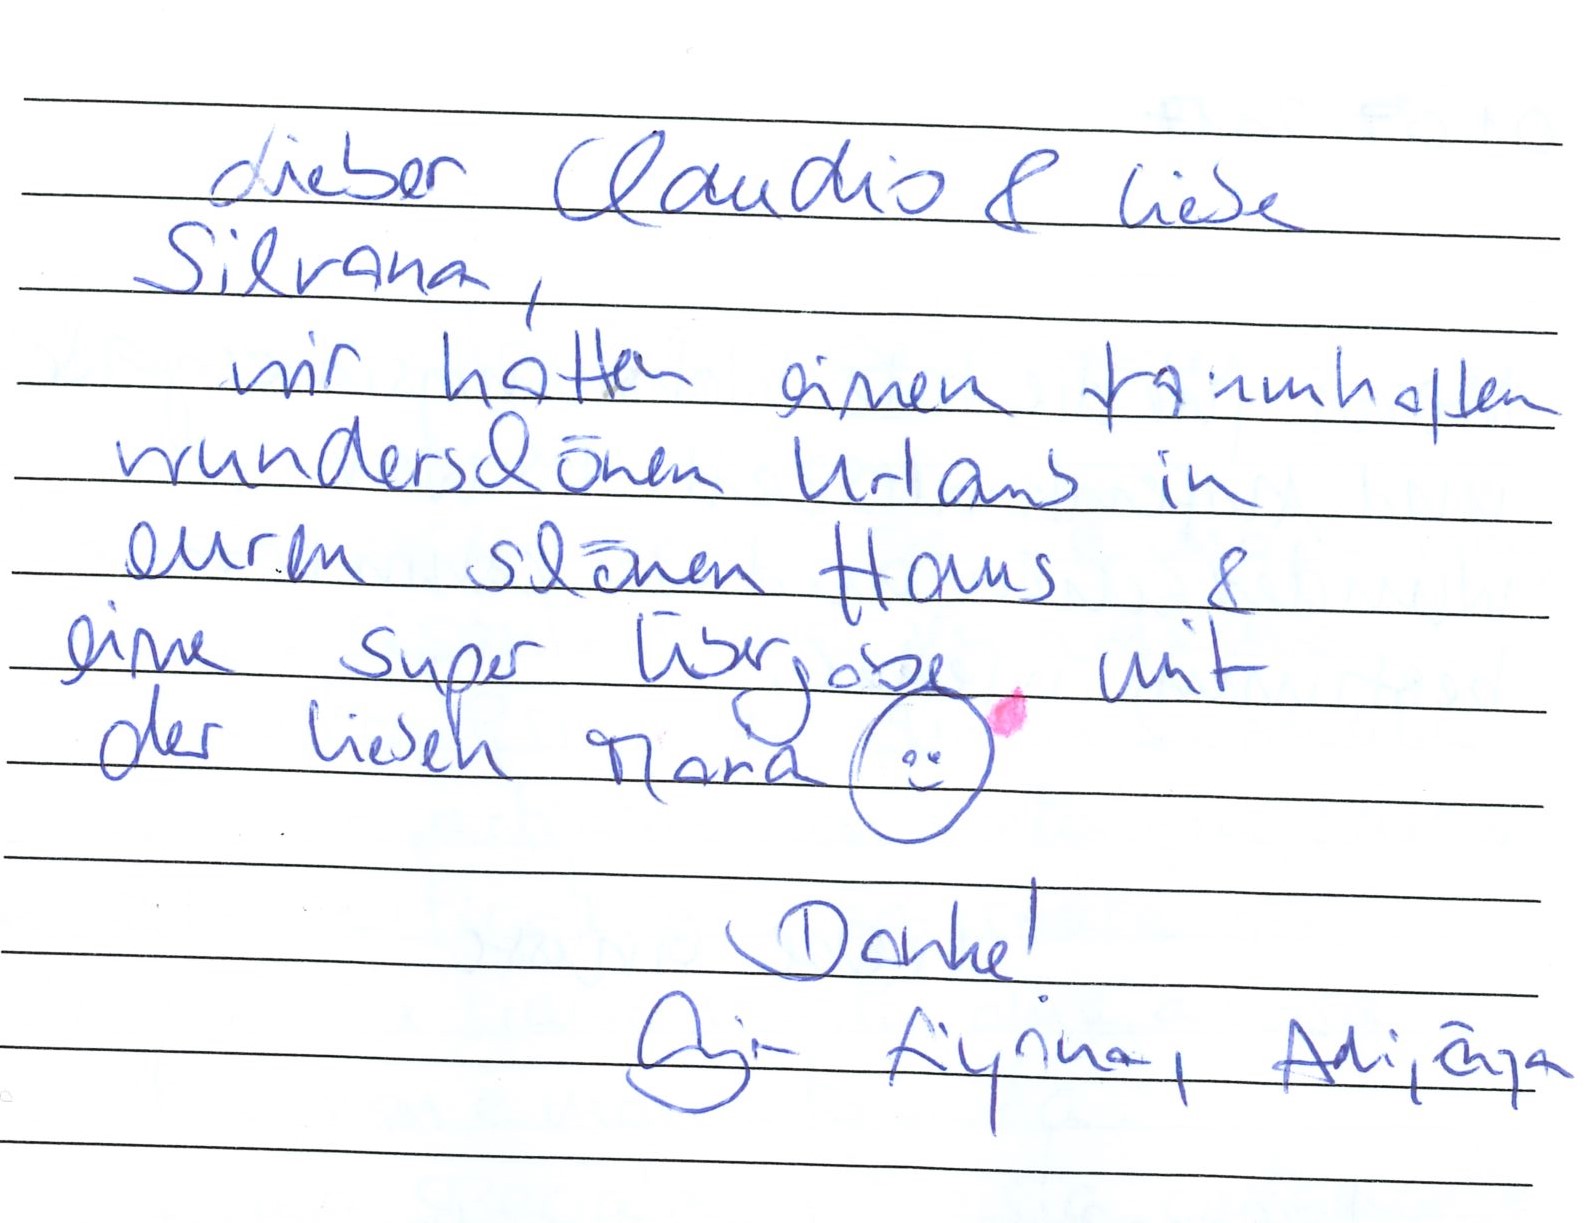 Lieber Claudio & liebe
Silvana,
wir hatten einen traumhaften
wunderschönen Urlaub in
eurem schönen Haus &
eine super Übergabe mit
der lieben Maria
Danke!
Adi,